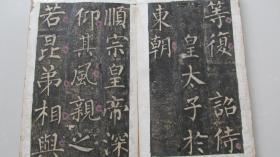 等復 詔侍
皇太子於
東朝
順宗皇帝深
仰其風親之
若昆弟相與